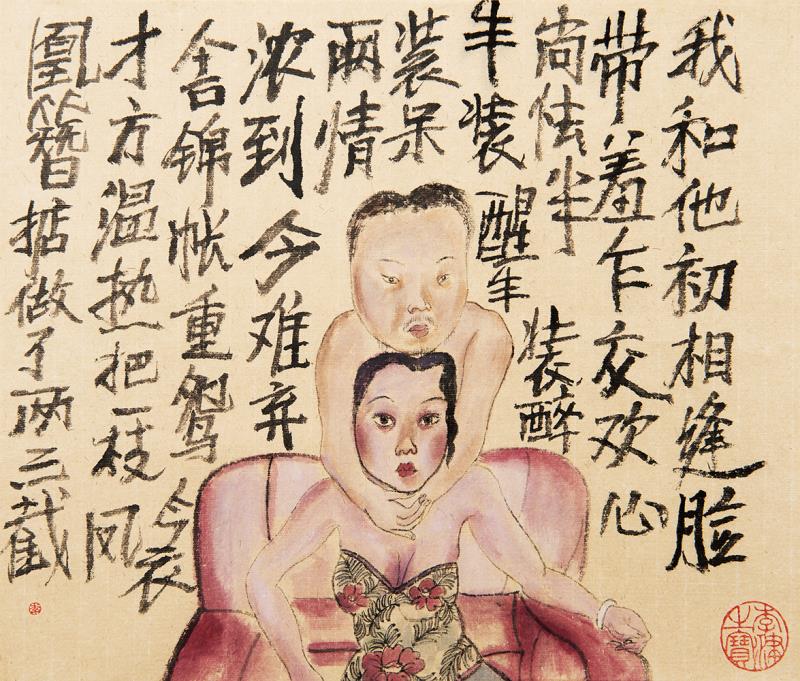 我和他初相缝脸
带羞乍交欢心
尚怯半装醉
半装醒半
装呆
两情
浓到今难弃
舍锦帐重鸳衾
才方温热把一枝凤
凰簪掂做了两三截
李津之寶